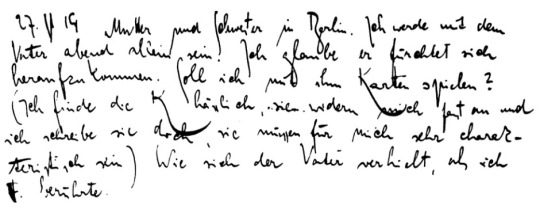 27. V 14 Mutter und Schwester in Berlin. Ich werde mit dem
Vater abend allein sein. Ich glaube er fürchtet sich
heraufzukommen. Soll ich mit ihm Karten spielen?
(Ich finde die K häßlich, sie widern mich fast an und
ich schreibe sie doch, sie müssen für mich sehr charak-
teristisch sein) Wie sich der Vater verhielt, als ich
F. berührte.